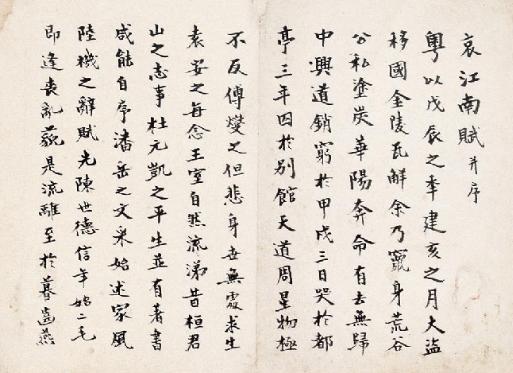 哀江南賦并序
粵以戊辰之年建亥之月大盜
移國金陵瓦解余乃竄身荒谷
公私塗炭華陽奔命有去無歸
中興道銷窮於甲戌三日哭於都
亭三年囚於別館天道周星物極
不反傅燮之但悲身世無處求生
袁安之每念王室自然流涕昔桓君
山之志事杜元凱之平生並有著書
咸能自序潘岳之文采始述家風
陸機之辭賦先陳世德信年始二毛
即逢喪亂藐是流離至於暮齒燕